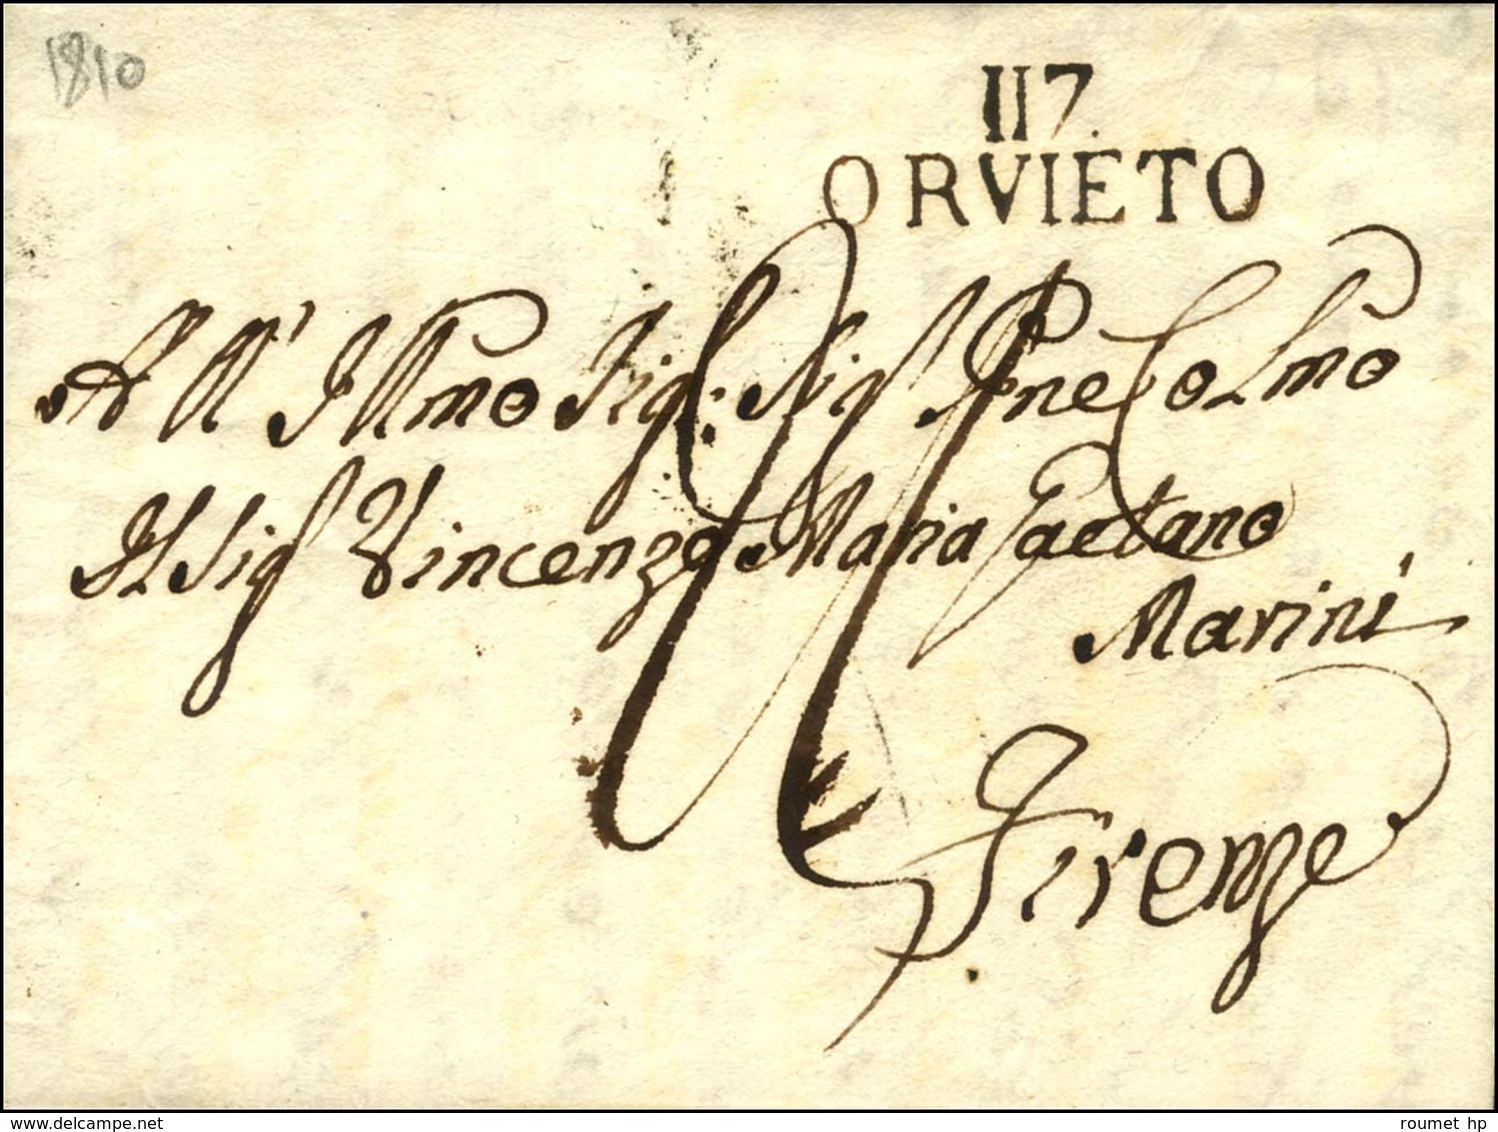 1810
117.
ORVIETO
All' Illmo Sig: Sig Pne Colmo
Il Sig Vincenzo Maria Gaetano
Marini
Firenze
delcampe.net
roumet hp